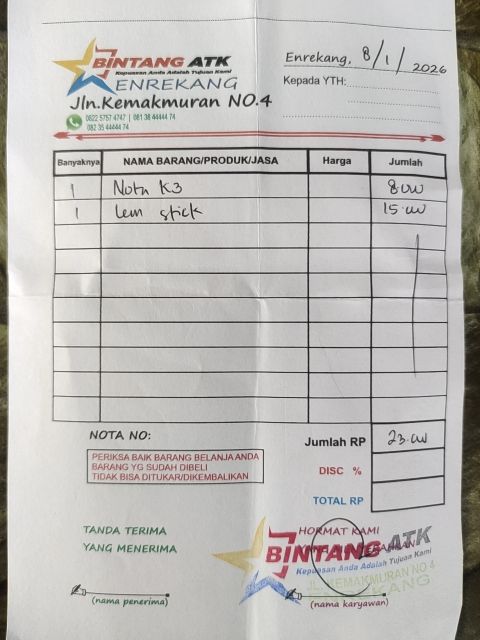 BINTANG ATK
Kepuasan Anda Adalah Tujuan Kami
ENREKANG
Jln.Kemakmuran NO.4
0822 5757 4747 | 081 38 44444 74
082 35 44444 74
Enrekang, 8/1/2026
Kepada YTH:
Banyaknya NAMA BARANG/PRODUK/JASA Harga Jumlah
1 Nota K3 8.000
1 Lem stick 15.000
NOTA NO:
Jumlah RP 23.000
PERIKSA BAIK BARANG BELANJA ANDA
BARANG YG SUDAH DIBELI
TIDAK BISA DITUKAR/DIKEMBALIKAN
DISC %
TOTAL RP
TANDA TERIMA
YANG MENERIMA
(nama penerima)
HORMAT KAMI
BINTANG ATK
Kepuasan Anda Adalah Tujuan Kami
JL. KEMAKMURAN NO 4
ENREKANG
(nama karyawan)